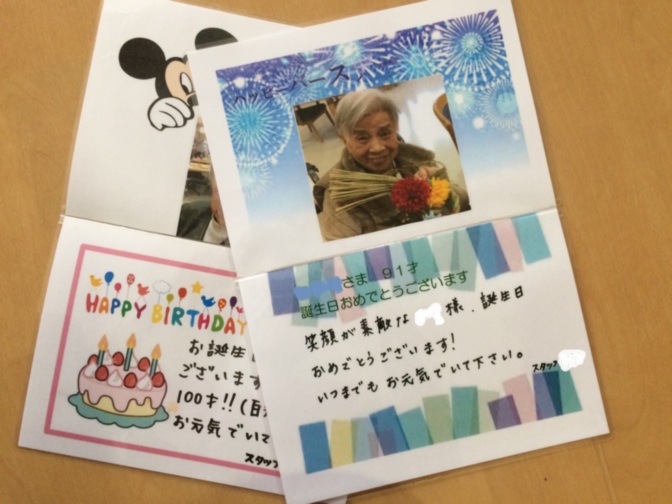 ハッピーバース
さま 91才
誕生日おめでとうございます
笑顔が素敵な 様、誕生日
おめでとうございます!
いつまでも お元気でいて下さい。
スタッフ
HAPPY BIRTHDAY
お誕生
ございます
100才!!(目
お元気でいて
スタッ